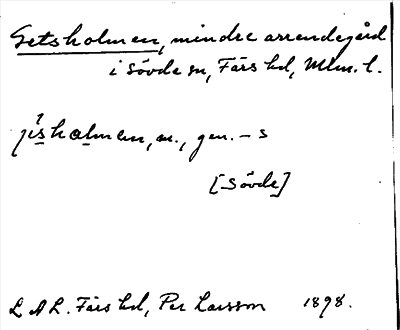 Getsholmen, mindre arrendegård
i Sövde sn, Färs hd, Mlm. l.
jísholmen, m., gen. – s
[Sövde]
L A L. Färs hd, Per Larsson 1898.